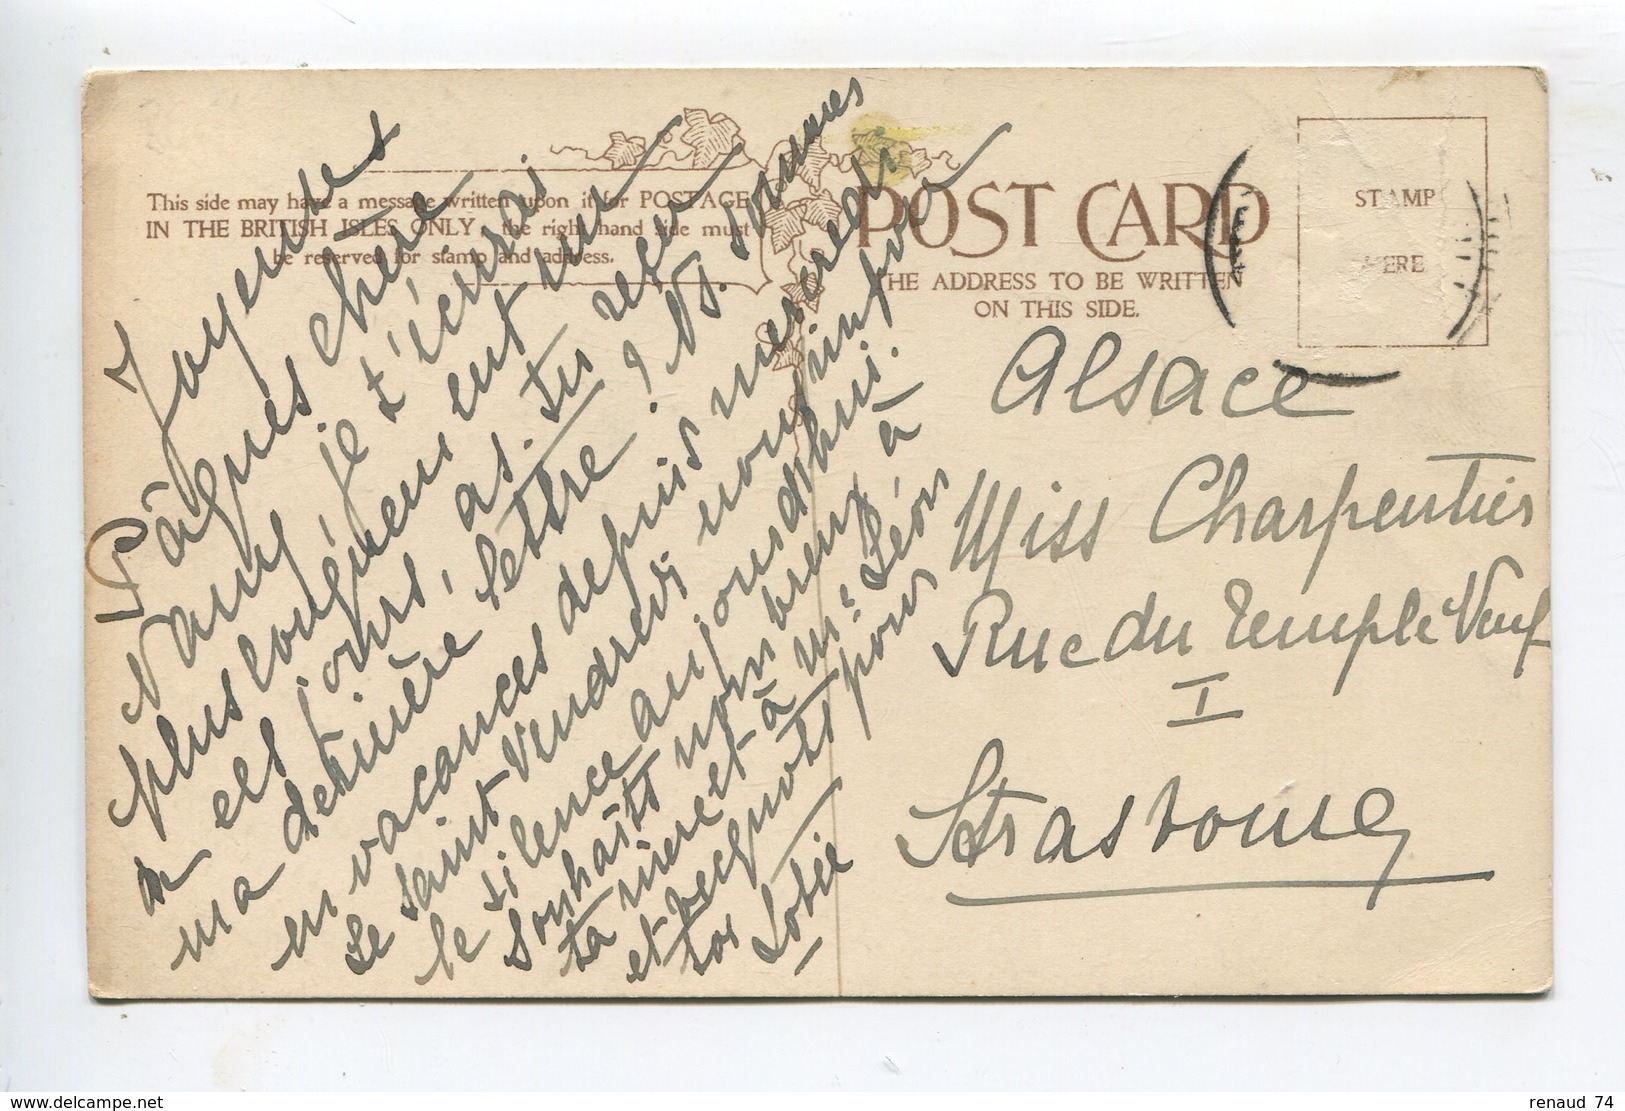 This side may have a message written upon it for POSTAGE
IN THE BRITISH ISLES ONLY, the right hand side must
be reserved for stamp and address.
POST CARD
THE ADDRESS TO BE WRITTEN
ON THIS SIDE.
STAMP
HERE
Joyeuses
Pâques chère
je t'écrirai
plus longuement un
de ces jours, as-tu reçu
ma dernière lettre? Ns. sommes
en vacances depuis mercredi
le saint vendredi nous
le silence aujourdhui.
Souhaits nombreux à
ta mère et à Mr Léon
et pour
toi Sotie
Alsace
Miss Charpentier
Rue du Temple Neuf
I
Strasbourg
delcampe.net
renaud 74